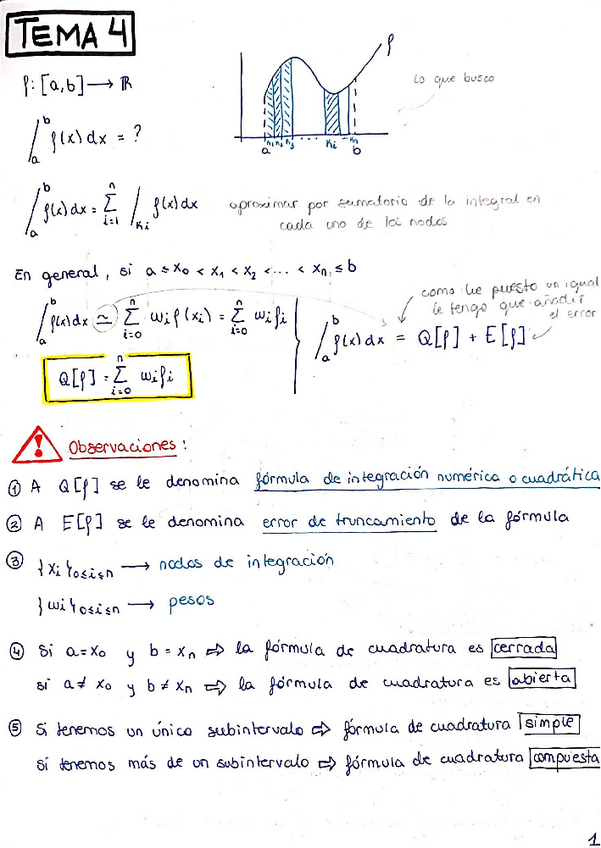 TEMA 4
f: [a,b] → ℝ
∫ₐᵇ f(x) dx = ?
f
Lo que busco
a x₁ x₂ x₃ ... Ki ... xn b
∫ₐᵇ f(x) dx = Σᵢ₌₁ⁿ ∫Ki f(x) dx
aproximar por sumatorio de la integral en
cada uno de los nodos
En general, si a ≤ x₀ < x₁ < x₂ < ... < xn ≤ b
como he puesto un igual
le tengo que añadir
el error
∫ₐᵇ f(x) dx ≃ Σᵢ₌₀ⁿ wi f(xi) = Σᵢ₌₀ⁿ wi fi
∫ₐᵇ f(x) dx = Q[f] + E[f]
Q[f] = Σᵢ₌₀ⁿ wi fi
! Observaciones:
① A Q[f] se le denomina fórmula de integración numérica o cuadrática
② A E[f] se le denomina error de truncamiento de la fórmula
③ {xi}₀≤i≤n → nodos de integración
{wi}₀≤i≤n → pesos
④ Si a = x₀ y b = xn ⇒ la fórmula de cuadratura es cerrada
si a ≠ x₀ y b ≠ xn ⇒ la fórmula de cuadratura es abierta
⑤ Si tenemos un único subintervalo ⇒ fórmula de cuadratura simple
si tenemos más de un subintervalo ⇒ fórmula de cuadratura compuesta
1